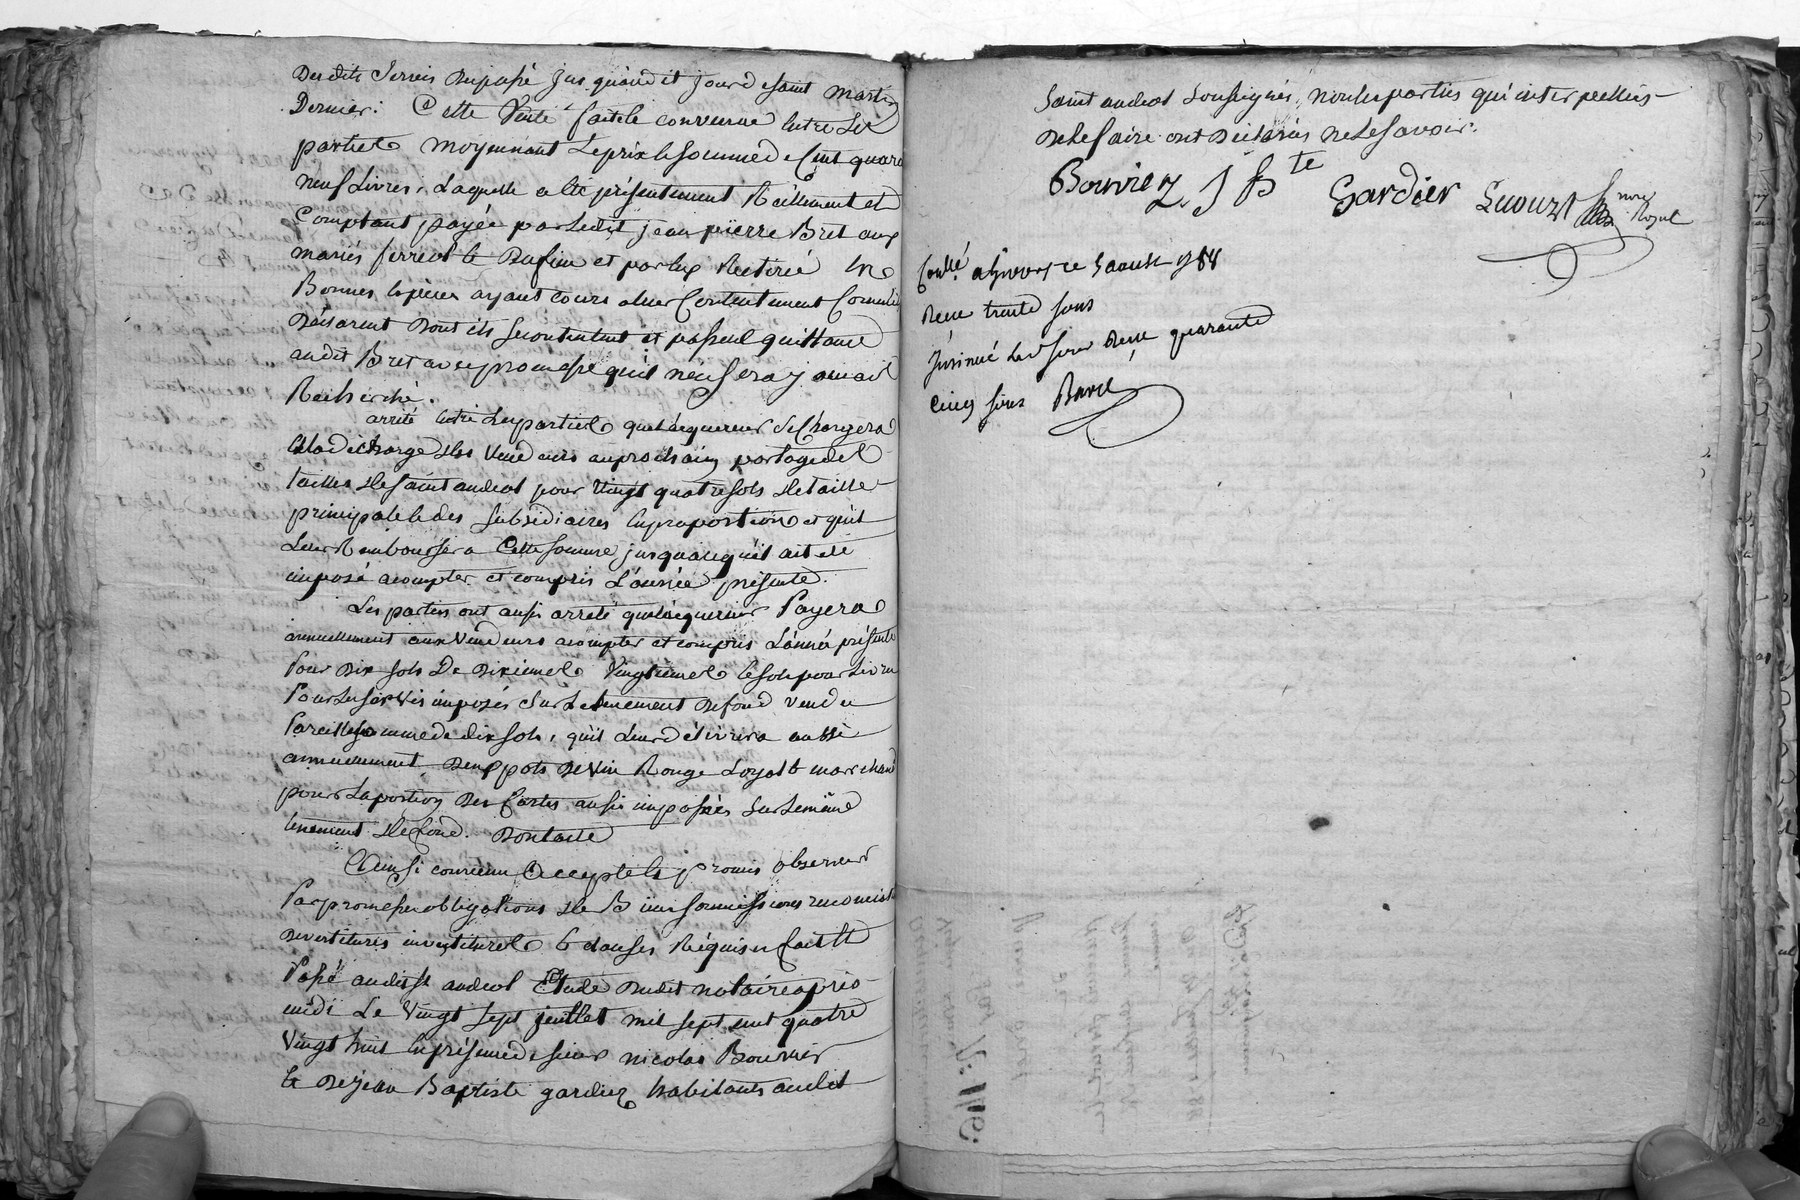 Desdits Servis Dupassé jus quaudit jour de saint martin
Dernier: Cette Vente faite & convenue Entre Les
parties moyennant Le prix & somme de Cent quara
neuf Livres, Laquelle a été présentement Réellement et
Comptant payée par Ledit jean pierre Bret aux
mariés ferriol & Dufieu et par Eux Retirée En
Bonnes Espèces ayant cours a leur Contentement Comme
Déisarent Dont ils Secontentent et passent quittance
audit Bret avec promesse quil n'en sera jamais
Recherché.
arrêté Entre Les parties que Lacquereur se Chargera
à la décharge des Vendeurs au prochain partage des
tailles de saint andeol pour Vingt quatre sols de taille
principale & des Subsidiaires En proportion et quil
Leur Remboursera Cette somme jusqua ce quil ait été
imposé acompter et compris L'année présente.
Les parties ont aussi arrêté que Lacquereur Payera
annuellement aux Vendeurs acompter et compris L'année présente
Pour Dix sols De Dixiemes Vingtiemes & sols pour Livre
Pour Les Servis imposés Sur Le tenement De fond Vendu
Pareille somme de dix sols, quil Leur délivrera aussi
annuellement Deux pots De Vin Rouge Loyal & marchand
pour La portion Des Cartes aussi imposées Sur Le même
tenement De fond. Dont acte
Ainsi convenu Accepté & promis observer
Par promesses obligations De Biens soumissions renonciat
devestitures investitures & clauses Réquises fait &
Passé audit St andeol Etude Dudit notaire après-
midi Le Vingt Sept juillet mil sept cent quatre
Vingt huit En présence de sieur nicolas Bouvier
& De jean Baptiste gardier habitants audit
Saint andeol Soussignés, non les parties qui interpellées
de Le faire ont Déclarés ne Le savoir.
Bouvier J Bte Gardier nre Royal
Conllé a Givors ce 5 aoust 1788
Reçu trente sous
Insinué led jour Reçu quarante
Cinq sous